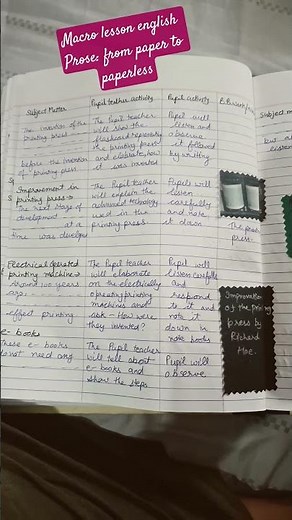 Macro lesson english
Prose: from paper to
paperless
Subject Matter
The invention of the
printing press
before the invention
of printing press
Improvement in
printing press
The next stage of
development at a
time was
Electrical operated
printing machine
Around two years
ago
effect printing
e- books
These e- books
do not need any
Pupil teacher activity
The Pupil teacher
will show the
flashcard representing
the printing press
and elaborate, how
it was invented
The Pupil teacher
will explain the
advanced technology
used in the
printing press
The Pupil teacher
will elaborate
on the electrically
operating printing
machines and
ask - How were
they invented?
The Pupil teacher
will tell about
e- books and
show the steps
Pupil activity
Pupil will
listen and
observe
it followed
by writing
Pupils will
listen
carefully
and note
it down
Pupil will
listen carefully
and
respond
to it and
note it
down in
note books
Pupil will
observe
The
press
Improvation
of the Printing
press by
Richard
Hoe.
Subject m
but a
listen